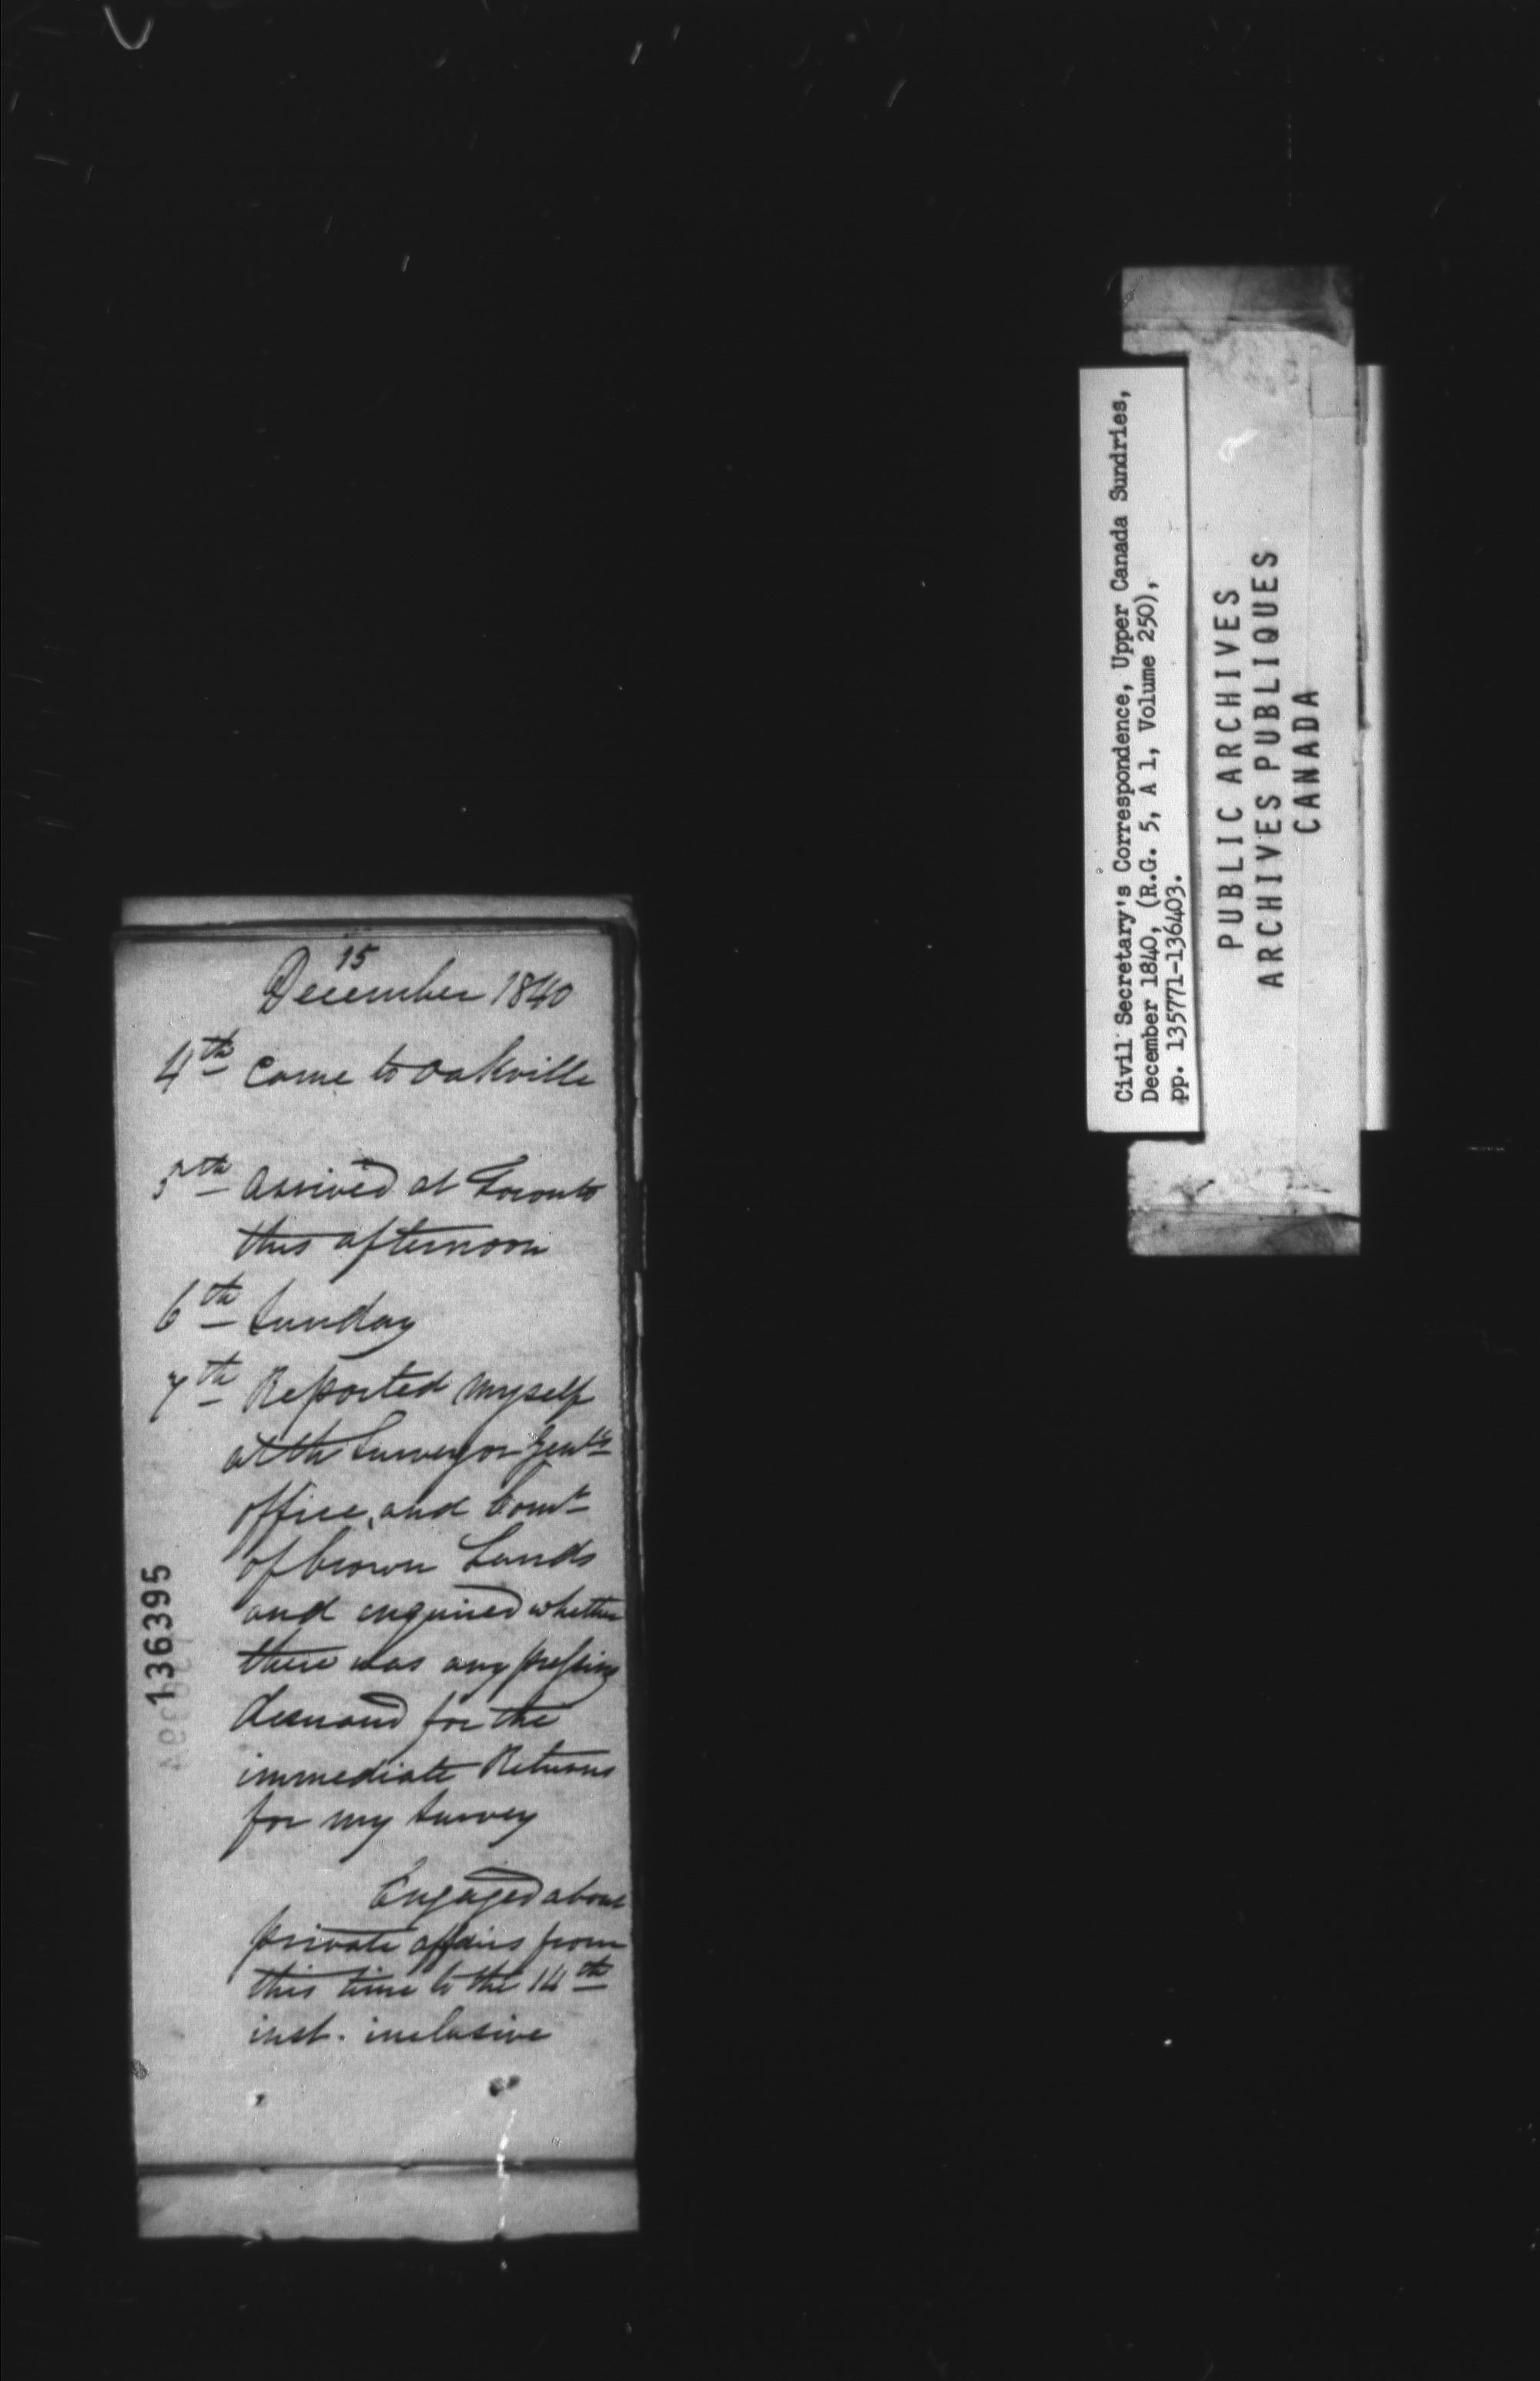 15
December 1840
4th Came to Oakville
5th Arrived at Toronto
this afternoon
6th Sunday
7th Reported myself
at the Surveyor Genls
office, and Comr
of Crown Lands
and enquired whether
there was any pressing
demand for the
immediate Returns
for my survey
Engaged about
private affairs from
this time to the 14th
inst. inclusive
136395
Civil Secretary's Correspondence, Upper Canada Sundries,
December 1840, (R.G. 5, A 1, Volume 250),
pp. 135771-136403.
PUBLIC ARCHIVES
ARCHIVES PUBLIQUES
CANADA